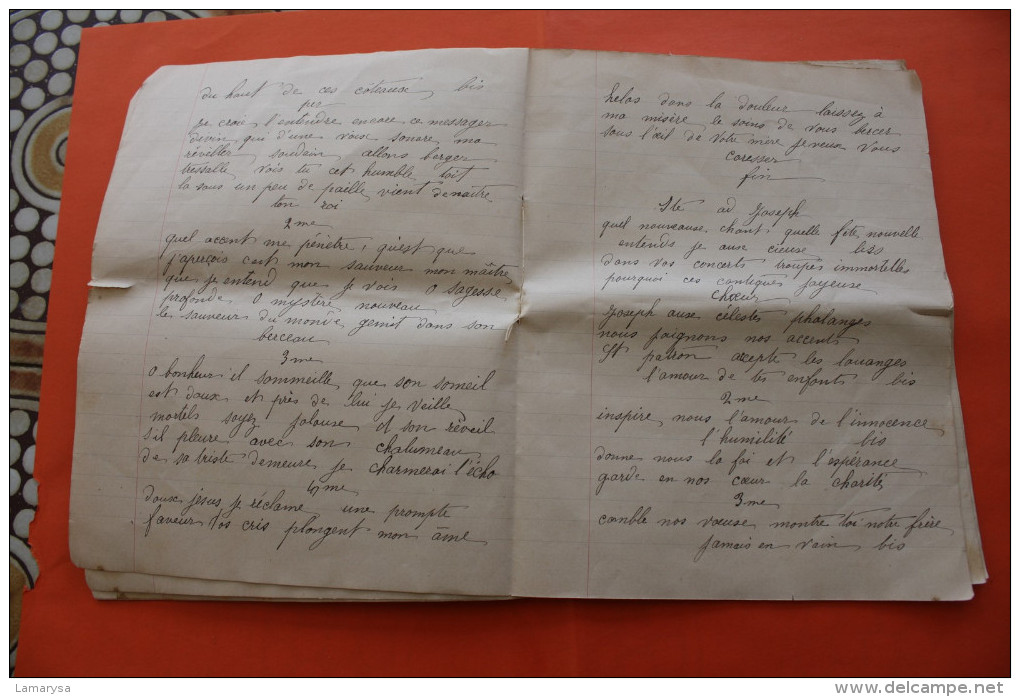 du haut de ces côteaux bis
per
je crois l'entendre encore ce messager
divin qui d'une voix sonore ma
réveiller soudain allons berger
tressalle vois tu cet humble toit
la sous un peu de paille vient de naître
ton roi
2me
quel accent me pénètre, qu'est que
j'aperçois c'est mon sauveur mon maître
que j'entend que je vois o sagesse
profonde o mystère nouveau
le sauveur du monde gemit dans son
berceau
3me
o bonheur il sommeille que son someil
est doux et près de lui je veille
mortels soyez jaloux et son réveil
s'il pleure avec son chalumeau
de sa triste demeure je charmerai l'écho
4me
doux jesus je réclame une prompte
faveur tes cris plongent mon âme
helas dans la douleur laissez à
ma misère le soins de vous bercer
sous l'œil de votre mère je veux vous
caresser
fin
Ite ad Joseph
quel nouveaux chant quelle fête nouvelle
entends je aux cieuse bis
dans vos concerts troupes immortelles
pourquoi ces cantiques joyeuse
Chœur
Joseph aux célestes phalanges
nous joignons nos accents
St patron accepte les louanges
l'amour de tes enfants bis
2me
inspire nous l'amour de l'innocence
l'humilité bis
donne nous la foi et l'espérance
garde en nos cœur la charité
3me
comble nos vœuse montre toi notre frère
jamais en vain bis
©Lamarysa
www.delcampe.net